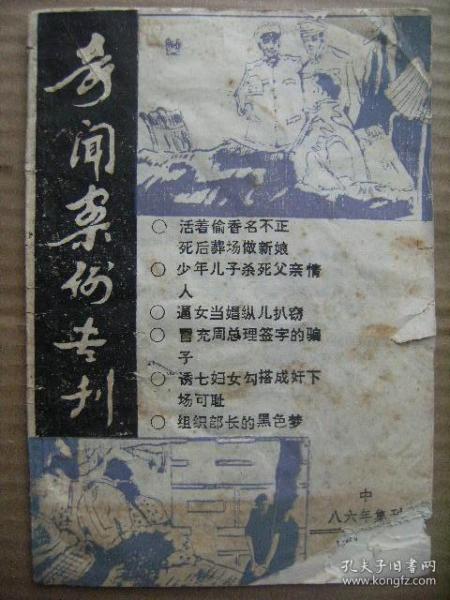 奇闻案例专刊
○ 活着偷香名不正
死后葬场做新娘
○ 少年儿子杀死父亲情
人
○ 逼女当娼纵儿扒窃
○ 冒充周总理签字的骗
子
○ 诱七妇女勾搭成奸下
场可耻
○ 组织部长的黑色梦
中
八六年集刊
孔夫子旧书网
www.kongfz.com